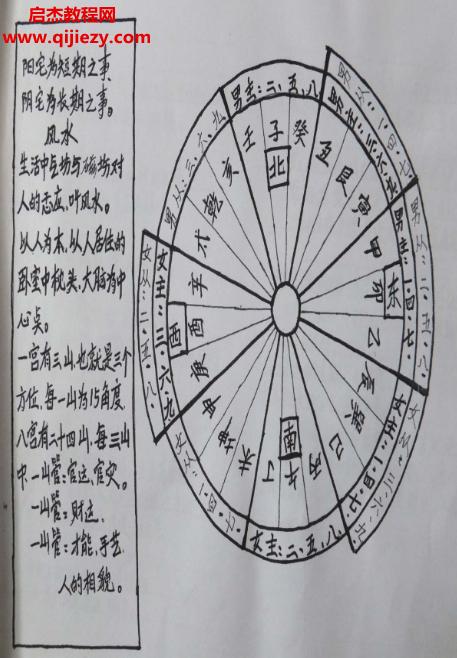 启杰教程网
www.qijiezy.com
阳宅为短期之事、
阴宅为长期之事。
风水
生活中气场与磁场对
人的感应,叫风水。
以人为本,以人居住的
卧室中枕头,大脑为中
心点。
一宫有三山,也就是三个
方位,每一山为15角度,
八宫有二十四山,每三山
中,一山管:官运、官灾。
一山管:财运、
一山管:才能、手艺、
人的相貌。
男主:二、五、八
男从:一、四、七
男主:三、六、九
男主:一、四、七
男从:二、五、八
女主:一、四、七
女从:三、六、九
女主:二、五、八
女主:三、六、九
女从:二、五、八
男从:三、六、九
壬
子
癸
北
丑
艮
寅
甲
卯
东
乙
辰
巽
巳
丙
午
南
丁
未
坤
申
庚
酉
西
辛
戌
乾
亥